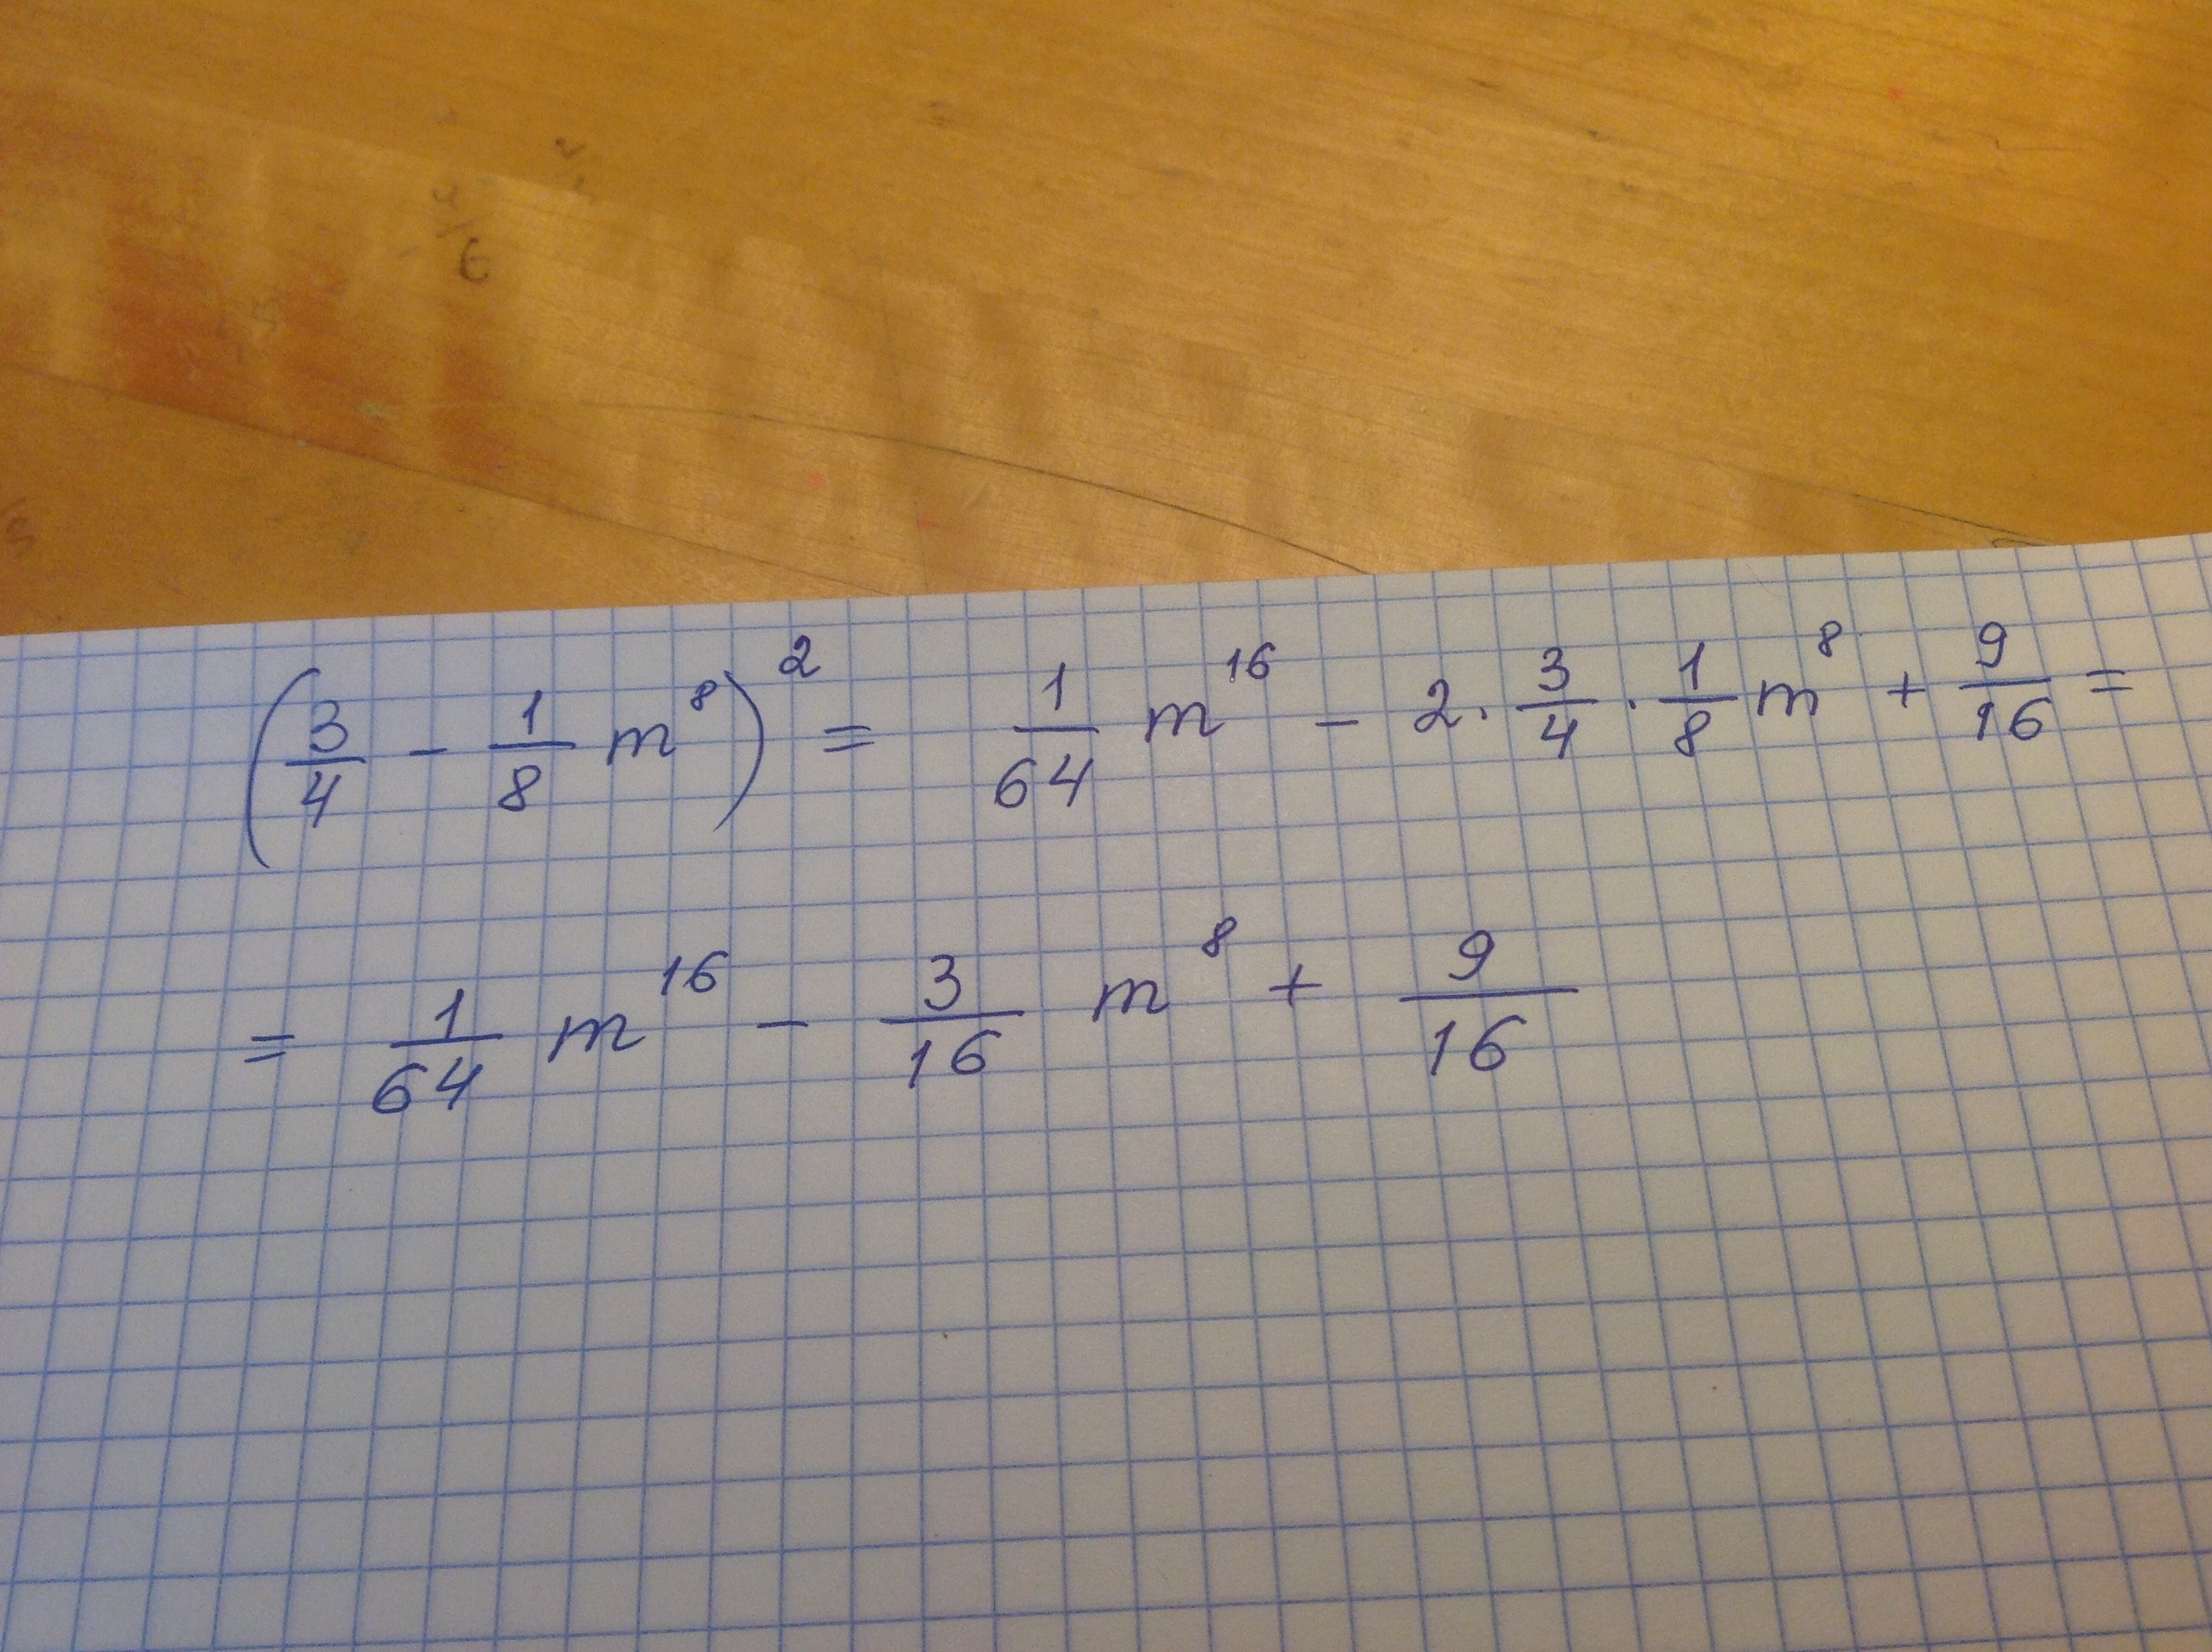 (3/4 - 1/8 m^8)^2 = 1/64 m^16 - 2 · 3/4 · 1/8 m^8 + 9/16 =
= 1/64 m^16 - 3/16 m^8 + 9/16